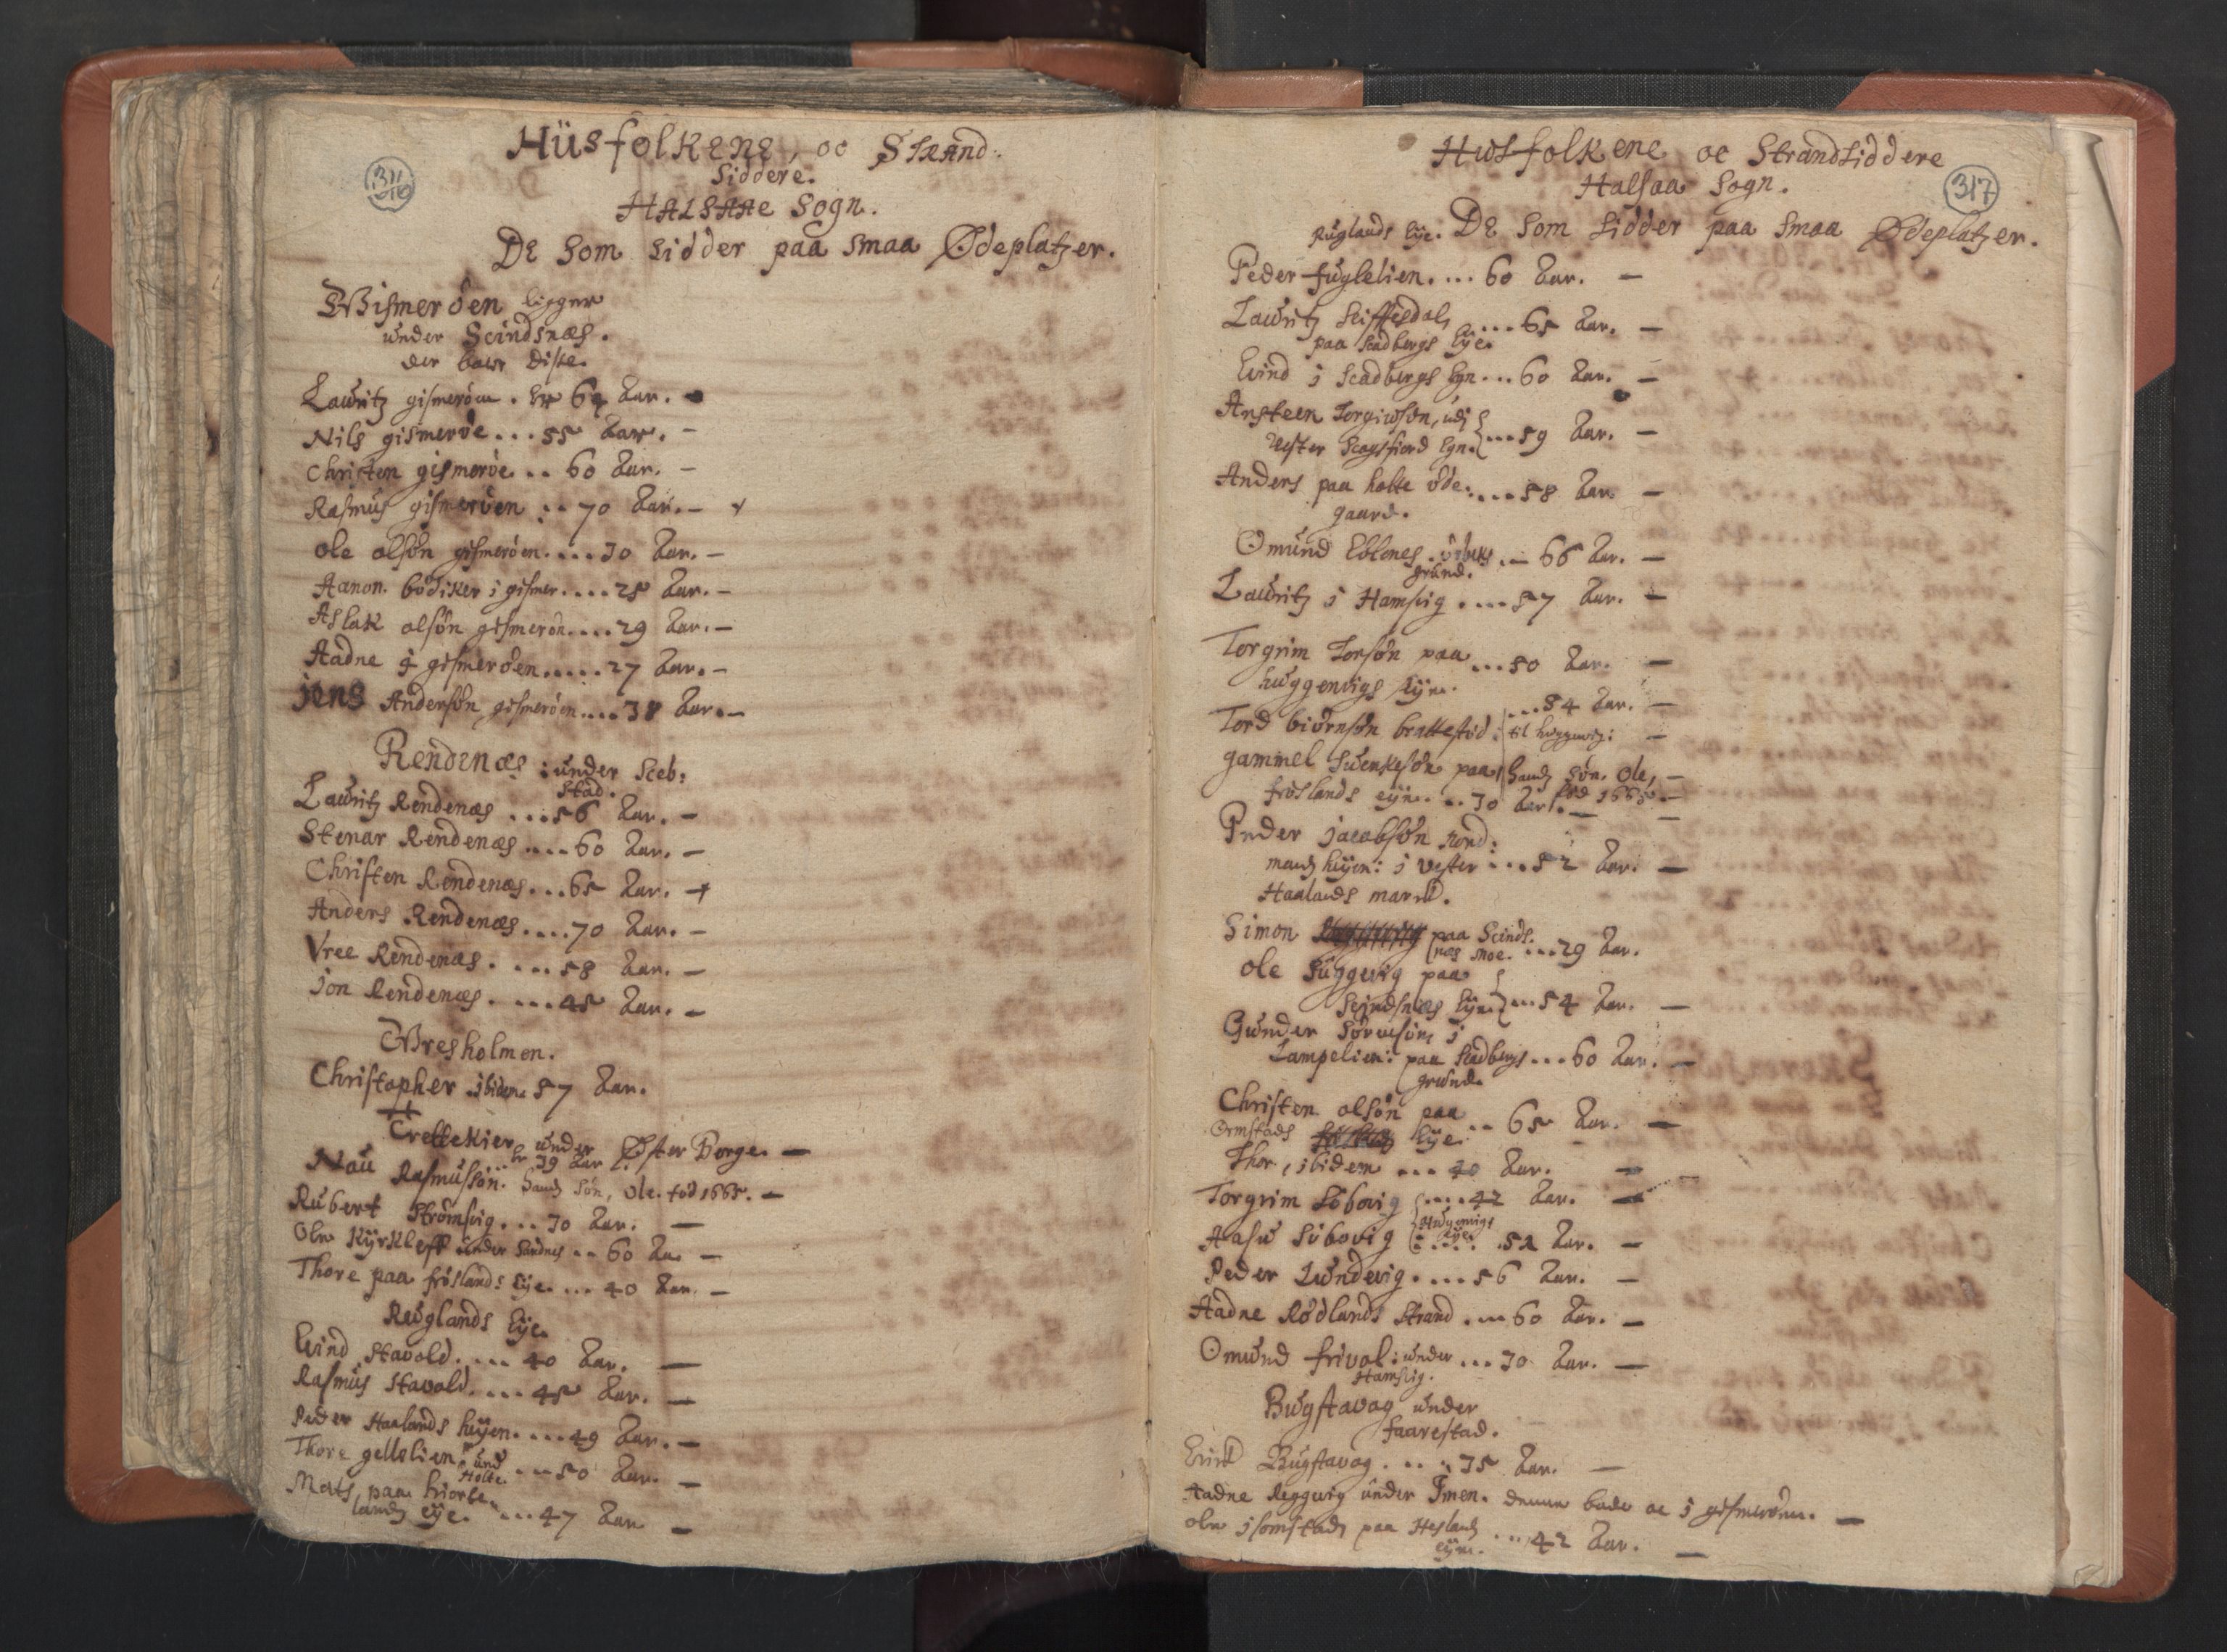 316
Hüsfolkene, oc Strand:
Siddere.
Halsaae Sogn.
De Som Sidder paa Smaa Ødeplatzer.
Gismerøen ligger
under Scindsnæs.
der boer diste.
Lauritz gismerøen . Er 69 Aar. –
Nils gismerøe...55 Aar. –
Christen gismerøe .. 60 Aar. –
Rasmus gismerøen .. 70 Aar. – +
Ole olsøn gismerøen....30 Aar. –
Aanon bødiker i gismer....28 Aar. –
Aslak olsøn gismerøn....29 Aar. –
Aadne i gismerøen.....27 Aar. –
jens Andersøn gismerøen....38 Aar. –
Rendenæs : under Sceb:
stad.
Lauritz Rendenæs ...56 Aar. –
Stenar Rendenæs ....60 Aar. –
Christen Rendenæs...65 Aar. +
Anders Rendenæs....70 Aar. –
Vree Rendenæs. ....58 Aar. –
jon Rendenæs. ....45 Aar. –
Wresholmen.
Christopher ibidem 57 Aar.
Trettekier under Øster Berge. –
Nau Rasmusøn. ...Er 39 Aar. hands Søn, Ole. fød 1665. –
Rubert Strømsvig...30 Aar. –
Ole Kÿrkleff under Sandnes .. 60 Aar –
Thore paa frøslands Eÿe....40 Aar. –
Reuglands Eÿe.
Eivind Stavold. ...40 Aar. –
Rasmus Stavold. ...45 Aar. –
Peder Haalands heÿen. ...49 Aar. –
Thore gellelien: und ...50 Aar. –
Holte.
Mats paa hiorte
lands eÿe. ...47 Aar –
317
Husfolkene oc Strandsiddere
Halsaa Sogn.
Ruglands Eÿe. De Som Sidder paa Smaa Ødeplatzer.
Peder fuglelien. ...60 Aar. –
Lauritz Skiffisdal, ...65 Aar. –
paa Scadbergs Eÿe.
Eivind i Scadbergs Egn...60 Aar. –
Ansteen Torgiusøn, udi
Vester Scogsfiord Egn. ...59 Aar. –
Anders paa holte øde: ...58 Aar –
gaard.
Omund Ebbenes. ... 66 Aar. –
grund.
Lauritz i Hamsvig ....57 Aar. –
Torgrim Torsøn paa ...50 Aar. –
huggenvigs Eÿe.
Tord biørnsøn brattestød: ...54 Aar. –
til huggenvig: –
gammel Svenkesøn paa hands Søn, Ole, –
frøslands eÿe. ..30 Aar. fød 1665. –
Peder jacobsøn Nord:
mands heÿen: i Vester ...52 Aar. –
Haalands marck.
Simon paa Scinds
næs moe. ...29 Aar.
Ole Süggevig paa
Scindsnæs Eÿe. ...54 Aar. –
Gunder Sørensøn, i
Lampelien: paa Skadbergs ...60 Aar. –
grund.
Christen olsøn paa
Ormstads Eÿe. .. 65 Aar. –
Thor, ibidem ...40 Aar. –
Torgrim Sobovig ....42 Aar. –
Huggenvigs
Eÿe.
Aasu Søbovig .....52 Aar. –
Peder Lundevig. ...56 Aar. –
Aadne Rødlands Strand ...60 Aar. –
Omund frivol: under ...30 Aar. –
Hamsvig.
Bugstavog under
faarestad.
Erick Bugstavog. ...35 Aar. –
Aadne Reggevig under Imen. denne boede oc i gismerøen. –
Ole isomstad, paa Heslands ...42 Aar. –
eÿe.